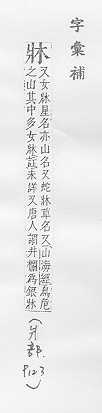 字彙補
牀
又女牀星名亦山名又蛇牀草名又山海經鳥危
之山其中多女牀註未詳又唐人謂井欄為銀牀
(爿部. P123)